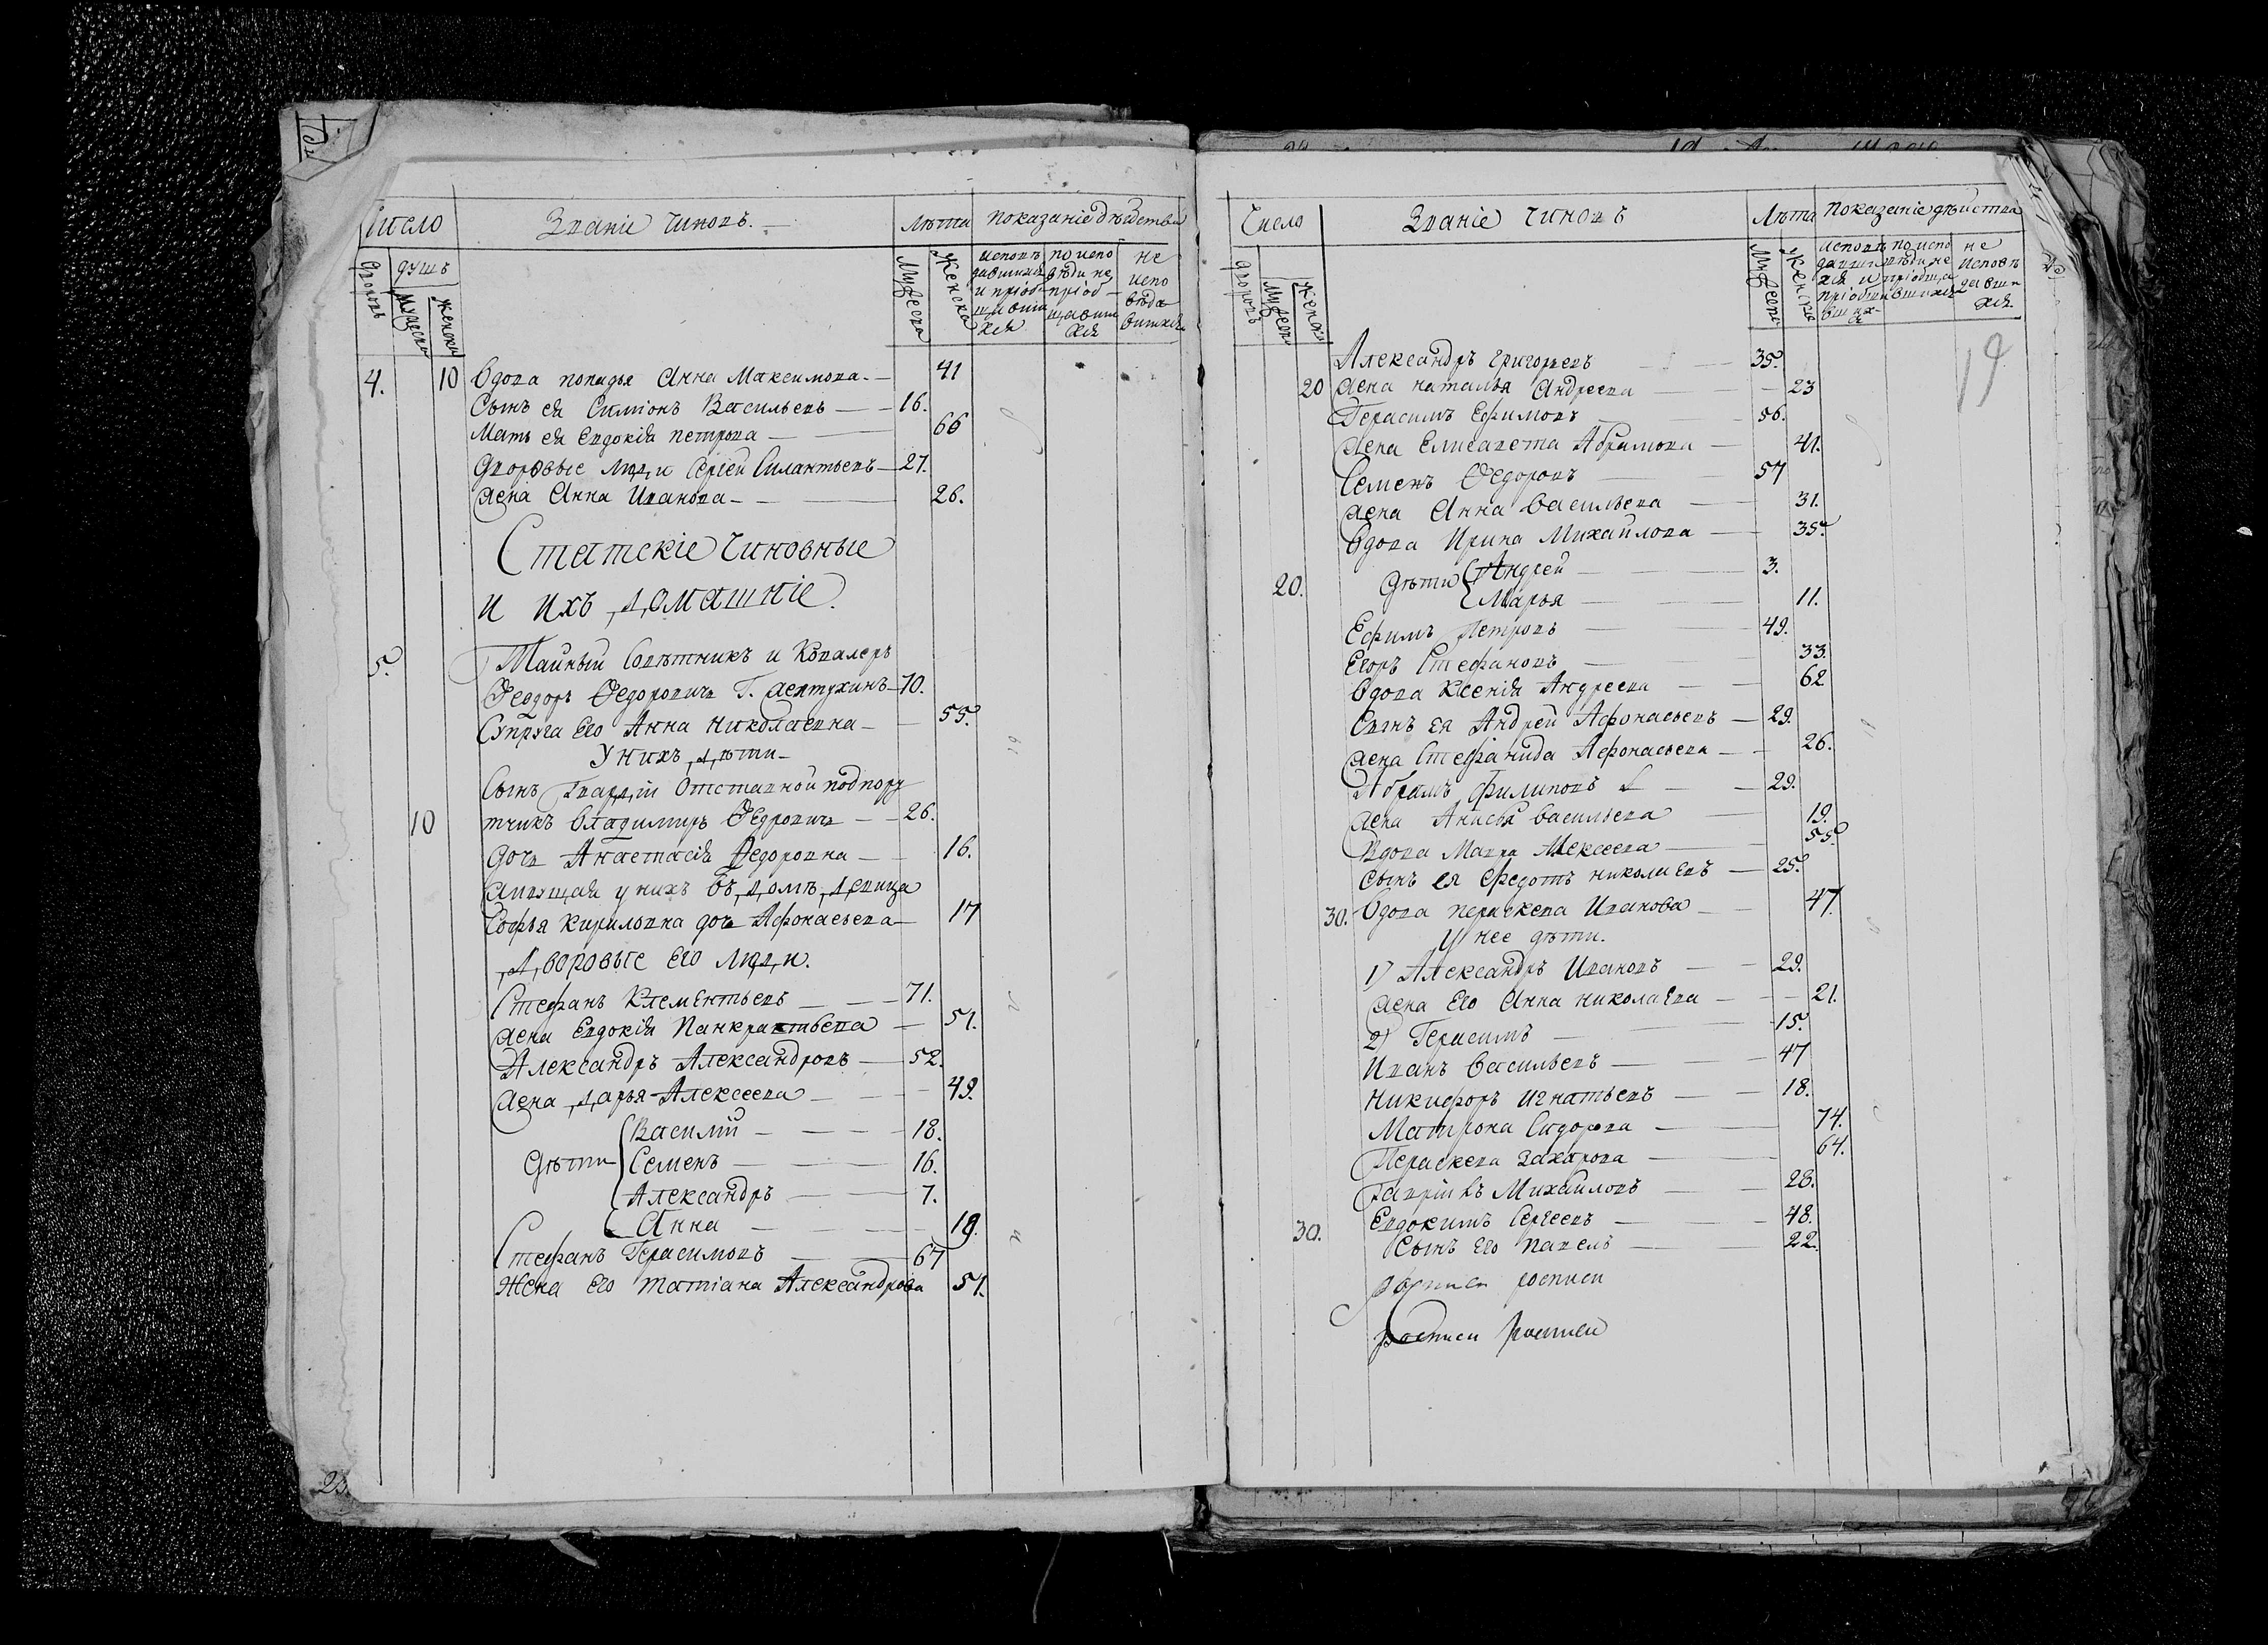 Число
Званіе чиновъ.
Лѣта
Показаніе дѣйства
дворовъ
душъ
мужеска
женска
Мужеска
Женска
исповѣ
давшихся
и пріоб
щавших
ся
по испо
вѣди не
пріоб
щавших
ся
не
испо
вѣда
вшихся
4. 10 Вдова попадья Анна Максимова 41
Сынъ ея Симіонъ Васильевъ 16.
Мать ея Евдокія петрова 66
Дворовые люди Сергей Силантьевъ 27.
жена Анна Иванова 26.
Статскіе Чиновные
и ихъ домашніе.
5. Тайный Совѣтникъ и Кавалеръ
Феодоръ Федоровичь Г. Желтухинъ 70.
Супруга Его Анна Николаевна 55.
У нихъ дѣти
Сынъ Гвардіи Отставной подпору
10 тчикъ Владимиръ Федровичь 26.
Дочь Анастасія Федоровна 16.
Живущая у нихъ въ домѣ девица
Софья Кириловна дочь Афонасьева 17
Дворовые Его люди.
Стефанъ Клементьевъ 71.
жена Евдокія Панкратьева 51.
Александръ Александровъ 52.
жена Дарья Алексеева 49.
Дѣти
Василий 18.
Семенъ 16.
Александръ 7.
Анна 19.
Стефанъ Герасимовъ 67
Жена Его Татіана Александрова 51.
23.
Число
Званіе чиновъ
Лѣта
Показаніе дѣйства
дворовъ
Мужеск
Женска
Мужеска
Женска
исповѣ
давши
хся и
пріобщи
вших
ся
по испо
вѣди не
пріобща
вшихся
не
исповѣ
давши
хся
19
Александръ Григорьевъ 35.
20 жена наталья Андреева 23
Герасимъ Ефимовъ 56.
жена Елисавета Абрамова 41.
Семенъ Федоровъ 57
жена Анна Васильева 31.
Вдова Ирина Михайлова 35.
20. Дѣти Андрей 3.
Марья 11.
Ефимъ Петровъ 49.
Егоръ Стефановъ 33.
Вдова Ксенія Андреева 62
Сынъ ея Андрей Афонасьевъ 29.
жена Стефанида Афонасьева 26.
Абрамъ Филиповъ 29.
жена Анисья Васильева 19.
Вдова Мавра Алексеева 55.
Сынъ ея Федотъ николаевъ 25.
30. Вдова параскева Иванова 47.
У нее дѣти.
1) Александръ Ивановъ 29.
жена Его Анна николаева 21.
2) Герасимъ 15.
Иванъ Васильевъ 47
Никифоръ Игнатьевъ 18.
Матрона Сидорова 74.
Параскева Захарова 64.
Гавріилъ Михайловъ 28.
30. Евдокимъ Сергеевъ 48.
Сынъ Его павелъ 22.
росписи
росписи росписи